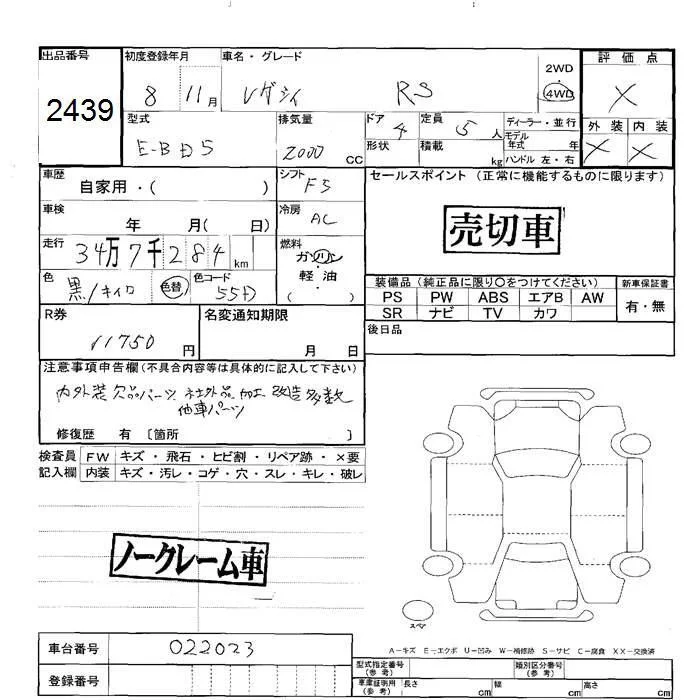 出品番号 初度登録年月 車名・グレード 評価点
2439 8 11月 レガシィ RS 2WD 4WD X
型式 排気量 ドア 4 定員 5人 ディーラー・並行 外装 内装
E-BD5 2000 CC 形状 積載 kg モデル年式 年 ハンドル 左・右 X X
車歴 自家用・( ) シフト F5 セールスポイント (正常に機能するものに限ります)
車検 年 月( 日) 冷房 AC
売切車
走行 34万7千284km 燃料 ガソリン 軽・油 ( )
色 黒/キイロ 色替 色コード 55D
装備品 (純正品に限り〇をつけてください) 新車保証書
PS PW ABS エアB AW 有・無
SR ナビ TV カワ
R券 11750円 名変通知期限 月 日 後日品
注意事項申告欄(不具合内容等は具体的に記入して下さい)
内外装 欠品パーツ 社外品 加工 改造 多数
他車パーツ
修復歴 有 〔箇所 〕
検査員 FW キズ・飛石・ヒビ割・リペア跡・×要
記入欄 内装 キズ・汚レ・コゲ・穴・スレ・キレ・破レ
ノークレーム車
スペア
A−キズ E−エクボ U−凹み W−補修跡 S−サビ C−腐食 XX−交換済
車台番号 022023
登録番号
型式指定番号(参考) 類別区分番号(参考)
車庫証明用(参考) 長さ cm 幅 cm 高さ cm